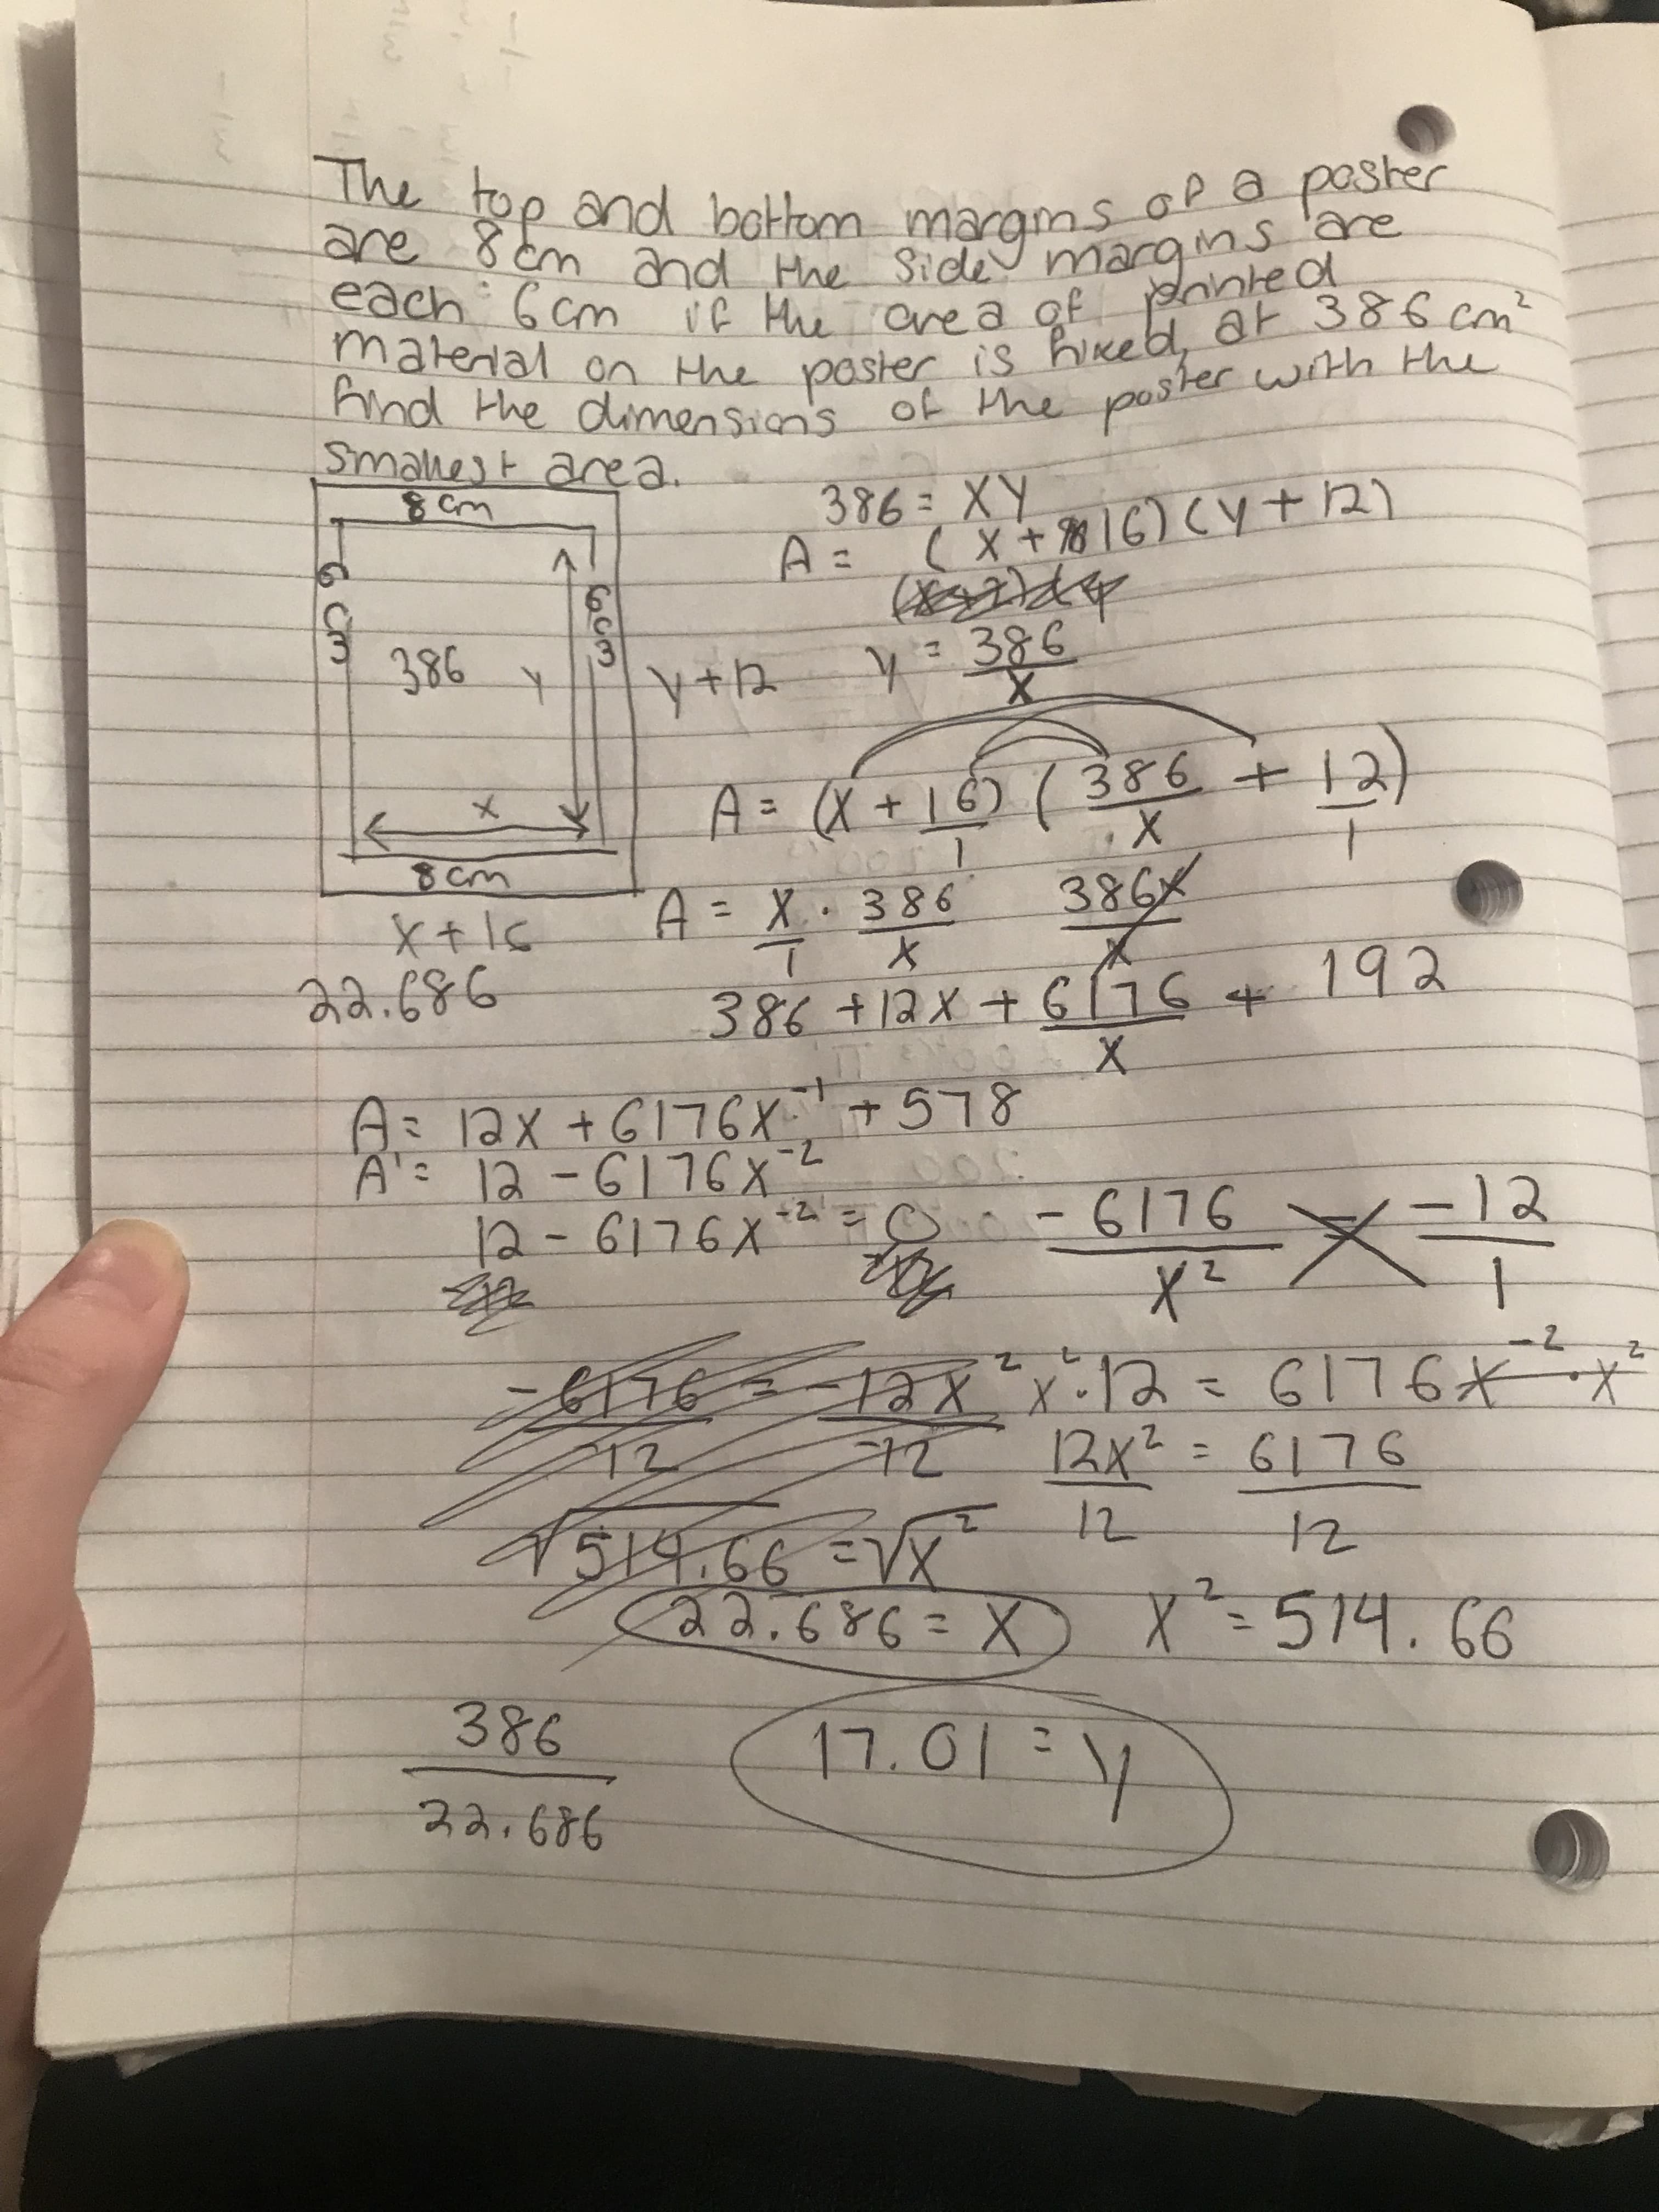 The top and bottom margins of a poster
are 8cm and the side margins are
each 6cm if the area of printed
material on the poster is fixed, at 386 cm²
find the dimensions of the poster with the
smallest area.
8 cm
6 cm
6 cm
386
y
y + 12
x
8 cm
x + 16
22.686
386 = XY
A = (x + 16) (y + 12)
y = 386/x
A = (x + 16/1) (386/x + 12/1)
A = x/1 · 386/x 386x/x
386 + 12x + 6176/x + 192
A = 12x + 6176x⁻¹ + 578
A' = 12 - 6176x⁻²
12 - 6176x⁻² = 0
-6176/x² = -12/1
-6176/-12 = -12x²/-12
x² · 12 = 6176x⁻² · x²
12x²/12 = 6176/12
√514.66 = √x²
22.686 = x
x² = 514.66
386/22.686
17.01 = y